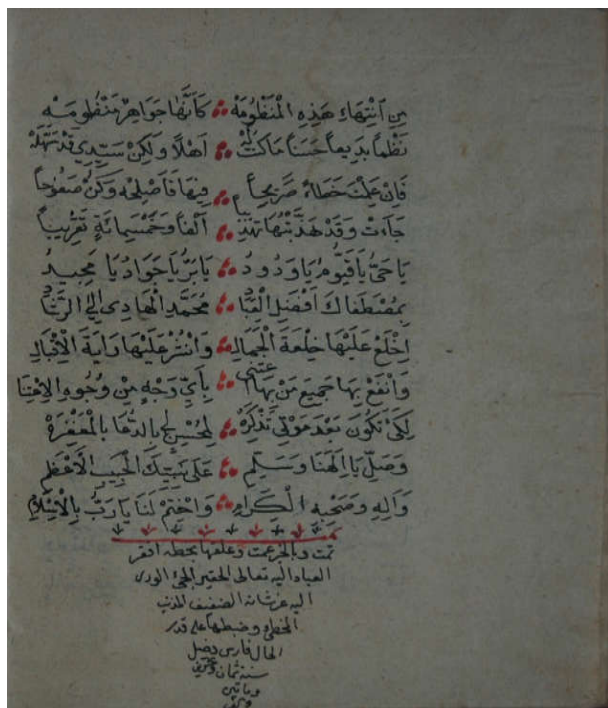 مِنِ انْتِهَاءِ هَذِهِ الْمَنْظُومَهْ ∴ كَأَنَّهَا جَوَاهِرٌ مَنْظُومَهْ
نَظْمًا بَدِيعًا حَسَنًا حَاكَتْ لَهُ ∴ أَهْلًا وَلَكِنْ سَيِّدِي قَدْ سَهَّلَهْ
فَإِنْ عَلِمْتَ خَطَاءً صَرِيحًا ∴ فِيهَا فَأَصْلِحْهُ وَكُنْ صَفُوحًا
جَاءَتْ وَقَدْ هَذَّبْتُهَا تَهْذِيبًا ∴ أَلْفًا وَخَمْسَمِائَةٍ تَقْرِيبًا
يَا حَيُّ يَا قَيُّومُ يَا وَدُودُ ∴ يَا بَرُّ يَا جَوَادُ يَا مَجِيدُ
بِمُصْطَفَاكَ أَفْضَلِ الْعِبَادِ ∴ مُحَمَّدِ الْهَادِي إِلَى الرَّشَادِ
اِخْلَعْ عَلَيْهَا خِلْعَةَ الْجَمَالِ ∴ وَانْشُرْ عَلَيْهَا رَايَةَ الْإِقْبَالِ
وَانْفَعْ بِهَا جَمِيعَ مَنْ بِهَا اعْتَنَى ∴ بِأَيِّ وَجْهٍ مِنْ وُجُوهِ الْاِعْتِنَا
لِكَيْ تَكُونَ بَعْدَ مَوْتِي تَذْكِرَهْ ∴ لِمُحْسِنٍ لِي بِالدُّعَا بِالْمَغْفِرَهْ
وَصَلِّ يَا إِلَهَنَا وَسَلِّمِ ∴ عَلَى نَبِيِّكَ الْحَبِيبِ الْأَعْظَمِ
وَآلِهِ وَصَحْبِهِ الْكِرَامِ ∴ وَاخْتِمْ لَنَا يَا رَبُّ بِالْإِسْلَامِ
تمت وبالخير عمت وعلقها بخطه افقر
العباد اليه تعالى الحقير
اليه الضعيف المذنب
الخطى وضبطها على قدر
الحال فارس فضل
سنة ثمان وعشرين
وماتين
والف